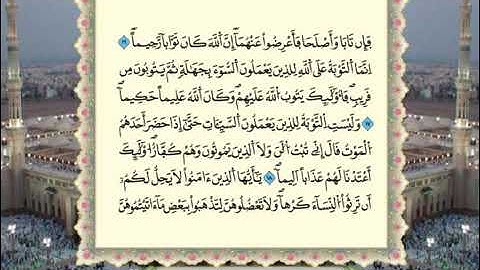 فَإِن تَابَا وَأَصْلَحَا فَأَعْرِضُوا۟ عَنْهُمَآ إِنَّ ٱللَّهَ كَانَ تَوَّابٗا رَّحِيماًۖ ١٦
اِنَّمَا اَ۬لتَّوْبَةُ عَلَى اَ۬للَّهِ لِلذِينَ يَعْمَلُونَ اَ۬لسُّوٓءَ بِجَهَٰلَةٖ ثُمَّ يَتُوبُونَ مِن
قَرِيبٖ فَأُوْلَٰٓئِكَ يَتُوبُ اُ۬للَّهُ عَلَيْهِمْۖ وَكَانَ اَ۬للَّهُ عَلِيماً حَكِيماًۖ
١٧ وَلَيْسَتِ اِ۬لتَّوْبَةُ لِلذِينَ يَعْمَلُونَ اَ۬لسَّيِّـَٔاتِ حَتَّىٰٓ إِذَا حَضَرَ أَحَدَهُمُ
اُ۬لْمَوْتُ قَالَ إِنِّے تُبْتُ اُ۬لَٰنَ وَلَا اَ۬لذِينَ يَمُوتُونَ وَهُمْ كُفَّارٌۖ اُوْلَٰٓئِكَ
أَعْتَدْنَا لَهُمْ عَذَاباً اَلِيماًۖ ١٨ يَٰٓأَيُّهَا اَ۬لذِينَ ءَامَنُواْ لَا يَحِلُّ لَكُمُۥٓ
أَن تَرِثُواْ اُ۬لنِّسَآءَ كَرْهاًۖ وَلَا تَعْضُلُوهُنَّ لِتَذْهَبُواْ بِبَعْضِ مَآ ءَاتَيْتُمُوهُنَّ